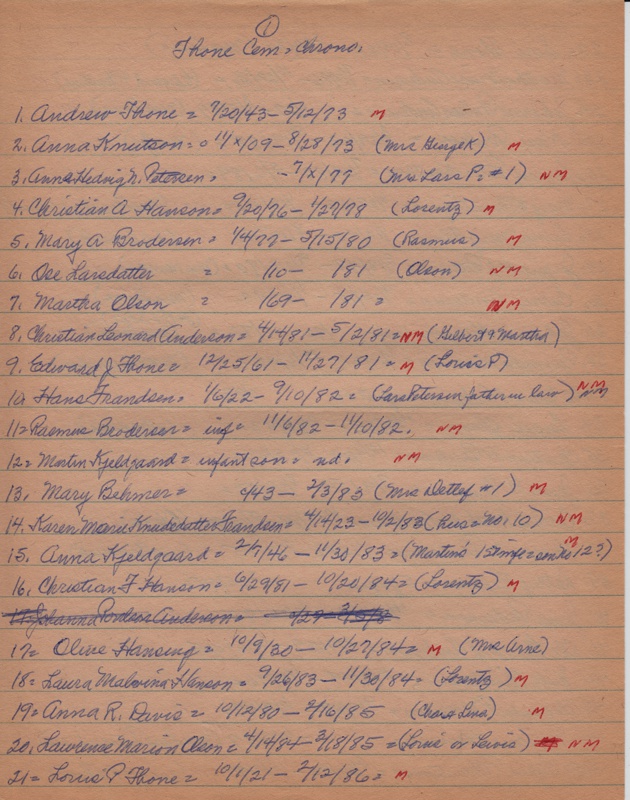 ①
Thone Cem = Chrono.
1. Andrew Thone = 7/20/43 - 5/12/73 M
2. Anna Knutson = 11/x/09 - 8/28/73 (Mrs George K) M
3. Anna Hedvig N. Petersen = - 7/x/77 (Mrs Lars P. = #1) NM
4. Christian A Hanson = 9/20/76 - 1/27/78 (Lorentz) M
5. Mary A Brodersen = 1/4/77 - 5/15/80 (Rasmus) M
6. Ose Larsdatter = /10 - /81 (Olson) NM
7. Martha Olson = /69 - /81 = NM
8. Christian Leonard Anderson = 4/14/81 - 5/2/81 = NM (Gilbert & Martha)
9. Edward J Thone = 12/25/61 - 11/27/81 = M (Louis P)
10. Hans Frandsen = 1/6/22 - 9/10/82 = (Lars Petersen father in law) NM NM
11 = Rasmus Brodersen = inf = 11/6/82 - 11/10/82. NM
12 = Martin Kjeldgaard = infant son = nd. NM
13. Mary Behmer = /43 - 2/3/83 (Mrs Detlef #1) M
14. Karen Marie Knudsdatter Frandsen = 4/14/23 - 10/2/83 (hus = No. 10) NM
15. Anna Kjeldgaard = 2/7/46 - 11/30/83 = (Martin's 1st wife = son No 12?) M
16. Christian F Hanson = 6/29/81 - 10/20/84 = (Lorentz) M
17 Johanna Anderson =
17 = Olive Hansing = 10/9/30 - 10/27/84 = M (Mrs Arne)
18 = Laura Malvina Hanson = 9/26/83 - 11/30/84 = (Lorentz) M
19 = Anna R. Davis = 10/12/80 - 2/16/85 (Chas & Lena) M
20. Lawrence Marion Olson = 4/14/84 - 3/18/85 = (Louis or Lewis) NM
21 = Louis P Thone = 10/1/21 - 2/12/86 = M